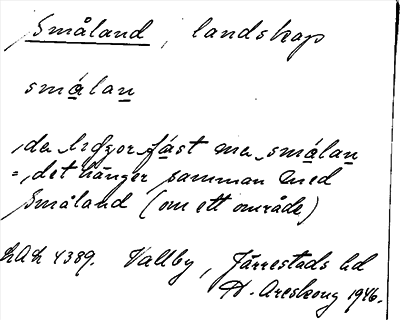 Småland, landskap
smålan
"de hägor fást me smålan
= "det hänger samman med
Småland (om ett område)
LAL 4389. Vallby, Järrestads hd
H. Areskoug 1946.